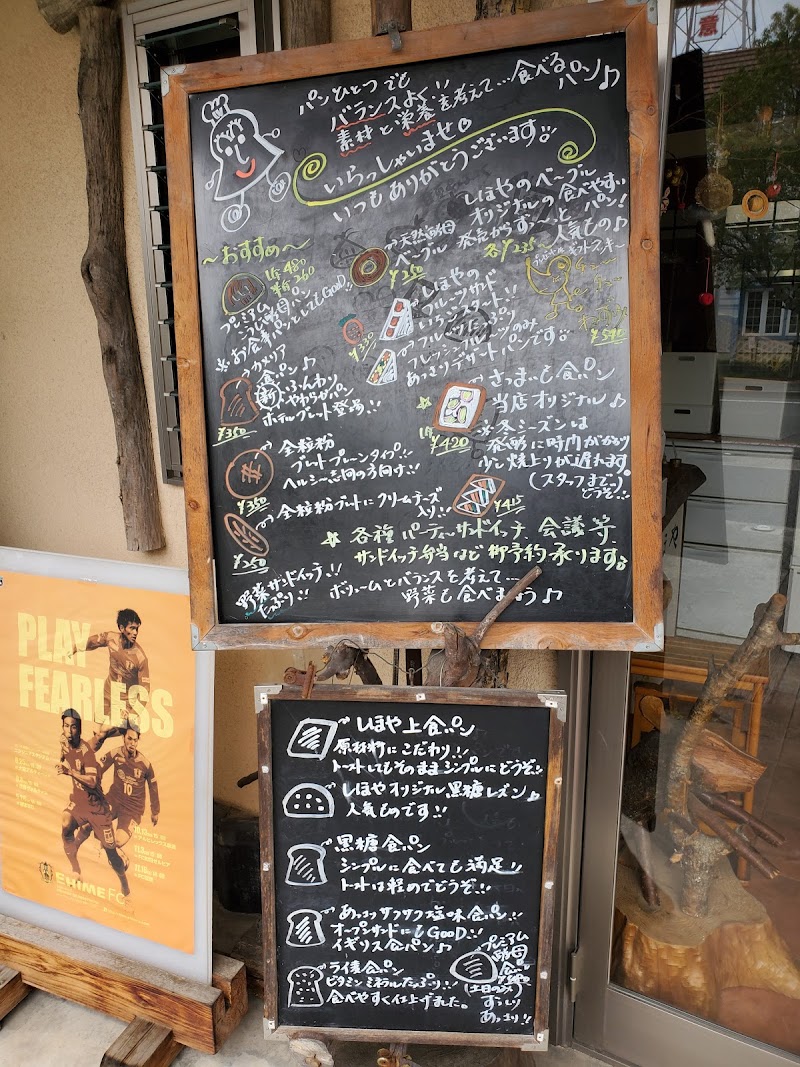 パンひとつでも
バランスよく!!
素材と栄養を考えて…食べるパン♪
いらっしゃいませ。
いつもありがとうございます!!
しほやのベーグル
オリジナルの食べやすい
発売からずーっと
人気もの♪
各¥235~
~おすすめ~
1斤480
半斤260
プレミアム
ぶどう酵母パン
※お食事パンとしてもGood!!
天然酵母
ベーグル
¥250
しほやの
フルーツサンド
いちごスタート!!
¥330
フレッシュフルーツのみ
あっさりデザートパンです。
¥540
カメリア
食パン♪
新 ふんわり
やわらかパン
ホテルブレット登場!!
¥350
さつまいも食パン
当店オリジナル♪
1斤
¥420
※冬シーズンは
発酵に時間がかかり
少し焼上りが遅れます
(スタッフまで…)
どうぞ!!
全粒粉
ブレットプレーンタイプ!!
ヘルシー志向の方向け!!
¥350
全粒粉ブレットにクリームチーズ
入り!!
¥250
¥415
☆各種パーティーサンドイッチ、会議等、
サンドイッチ弁当など御予約承ります。
野菜サンドイッチ!!
たっぷり!!
ボリュームとバランスを考えて…
野菜も食べましょう♪
PLAY
FEARLESS
10
EHIME FC
しほや上食パン
原材料にこだわり!!
トーストしてもそのままシンプルにどうぞ!!
しほやオリジナル黒糖レズン♪
人気ものです!!
黒糖食パン
シンプルに食べても満足!!
トーストは軽めでどうぞ!!
あっさりサクサク塩味食パン!!
オープンサンドにもGOOD!!
イギリス食パン♪
ライ麦食パン
ビタミンミネラルたっぷり!!
食べやすく仕上げました。
プレミアム
酵母
食パン
(土日のみ)
あっさり!!